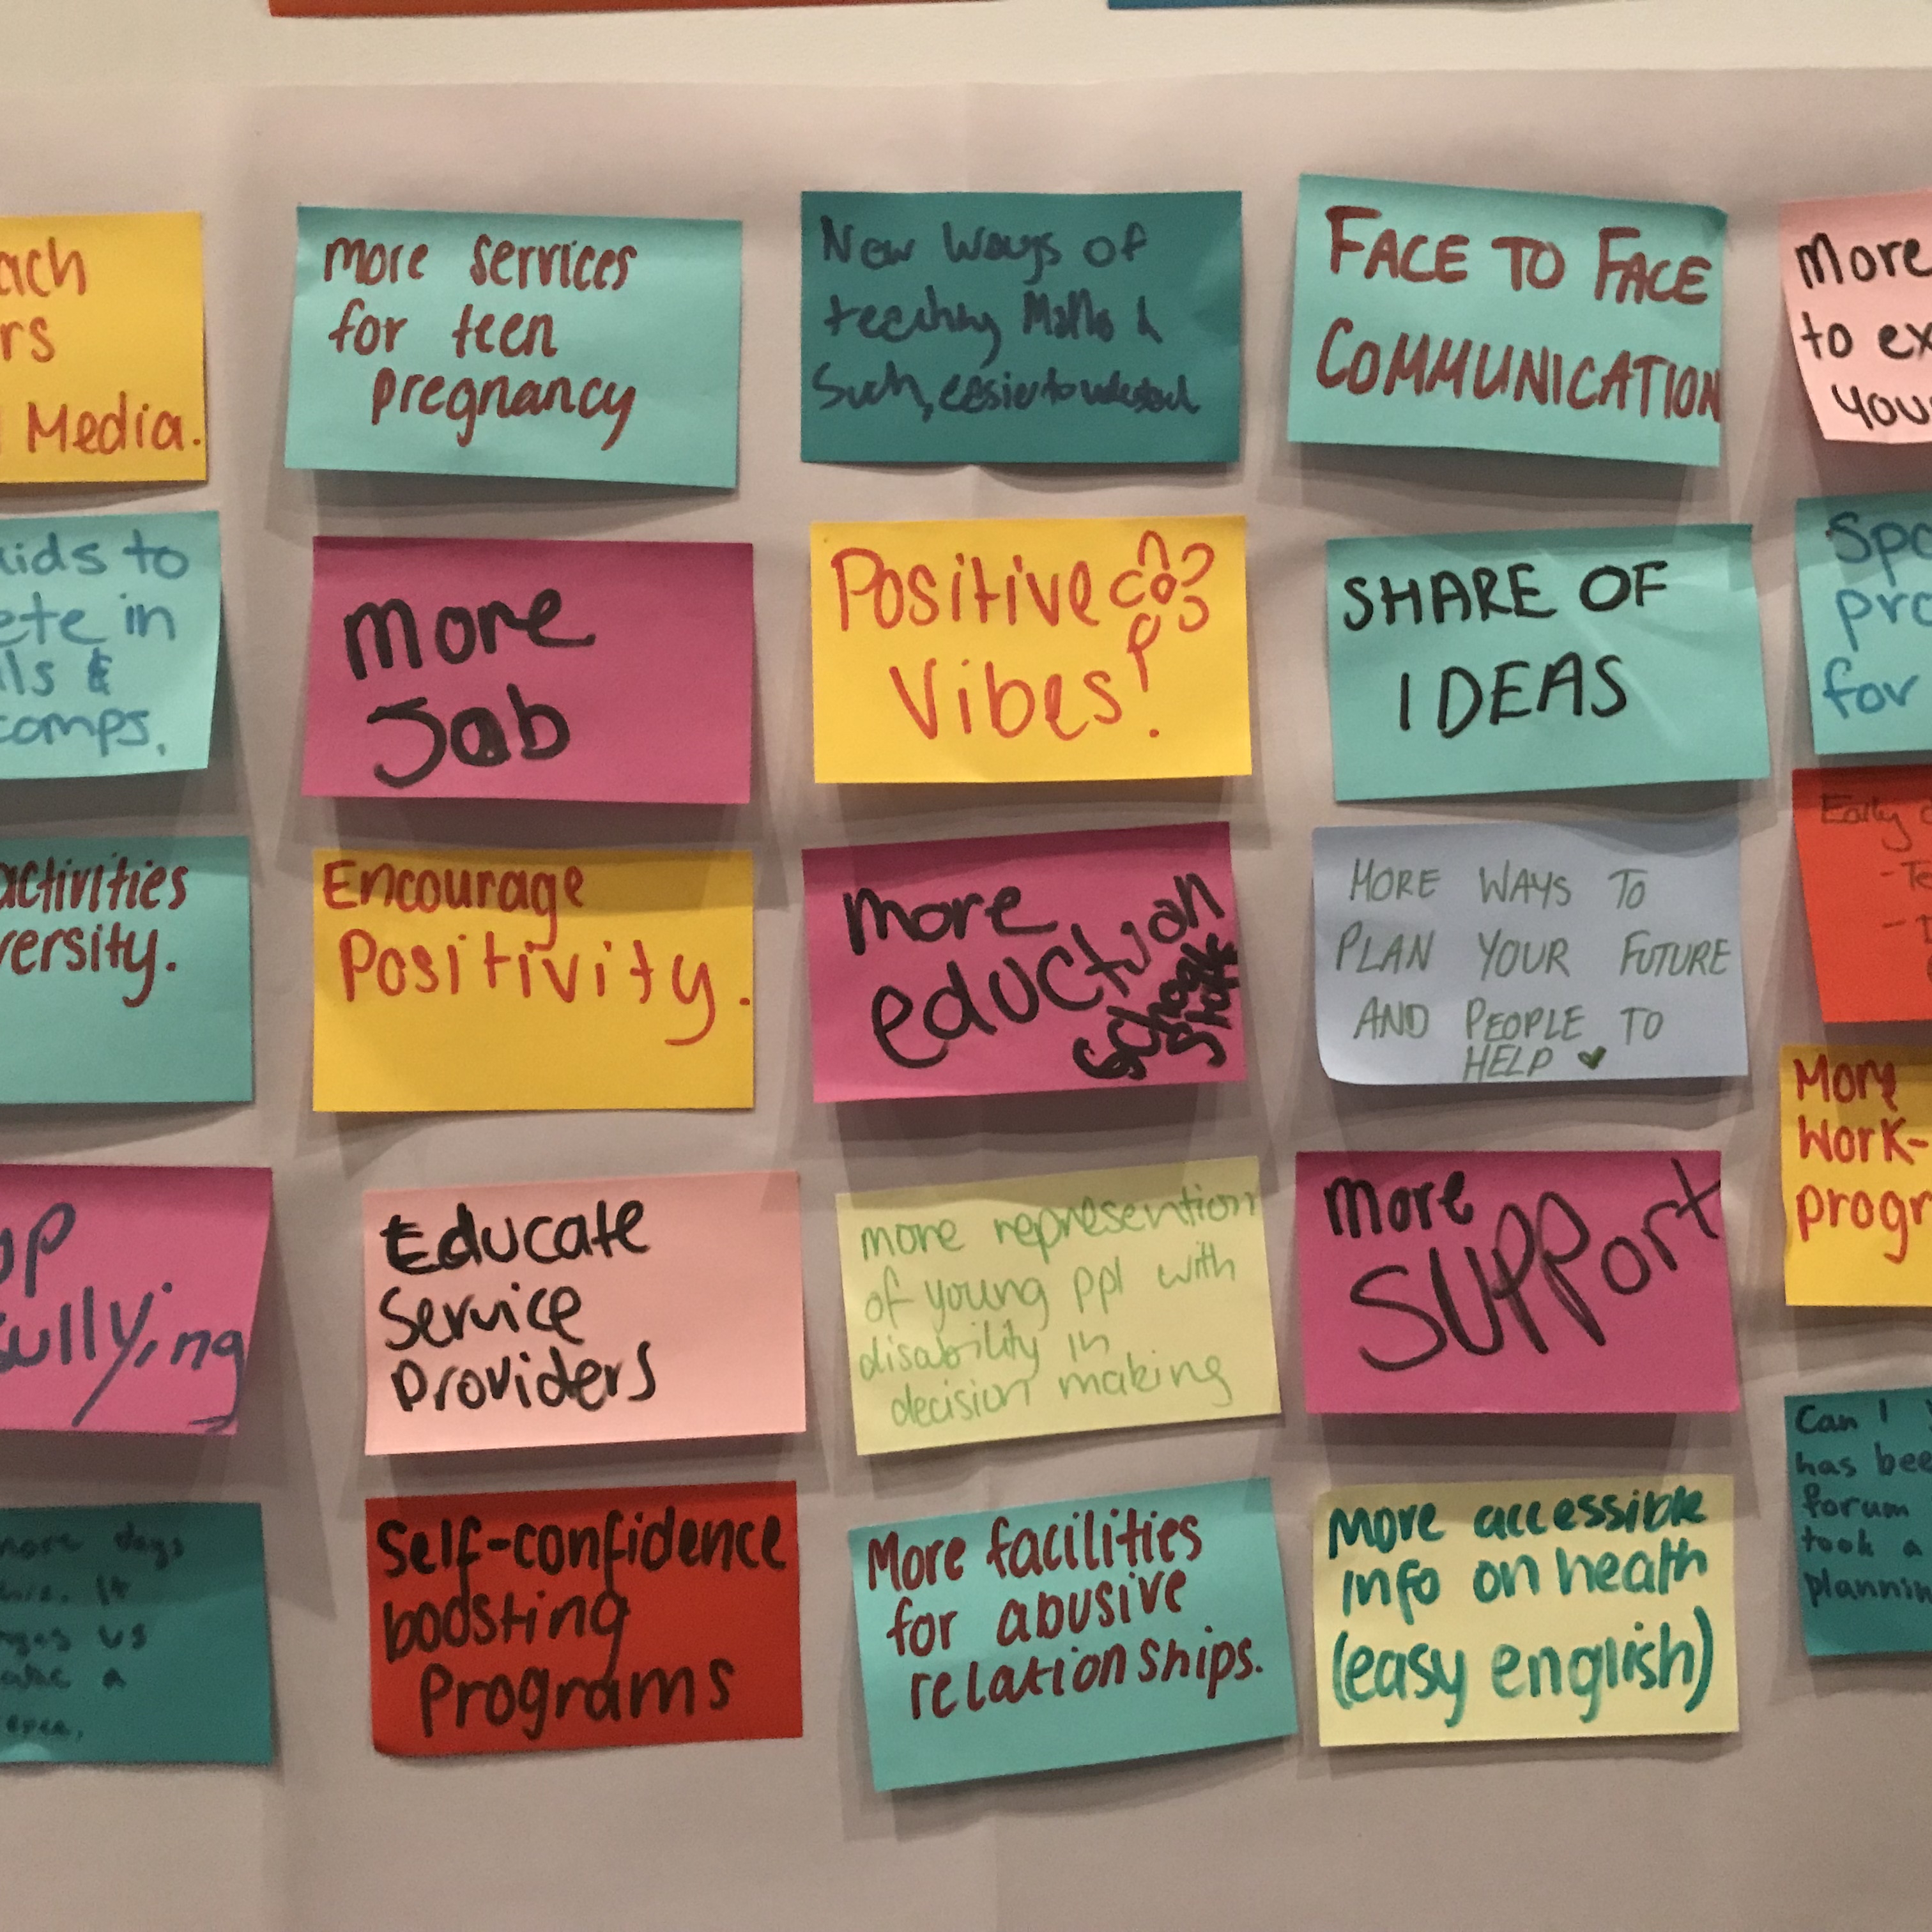 ach
rs
Media.
more services
for teen
pregnancy
New Ways of
teaching Maths &
Such, easier to understand
FACE TO FACE
COMMUNICATION
More
to ex
your
ids to
ete in
ls &
comps,
more
Job
Positive
Vibes!
SHARE OF
IDEAS
Spo
pro
for
activities
versity.
Encourage
Positivity.
more
eduction
School
MORE WAYS TO
PLAN YOUR FUTURE
AND PEOPLE TO
HELP
Early
- Te
op
ullying
Educate
Service
Providers
more represention
of young ppl with
disability in
decision making
more
Support
More
Work-
progr
more days
this. It
us
a
area,
Self-confidence
boosting
Programs
More facilities
for abusive
relationships.
More accessible
info on health
(easy english)
Can I
has bee
forum
took a
plannin